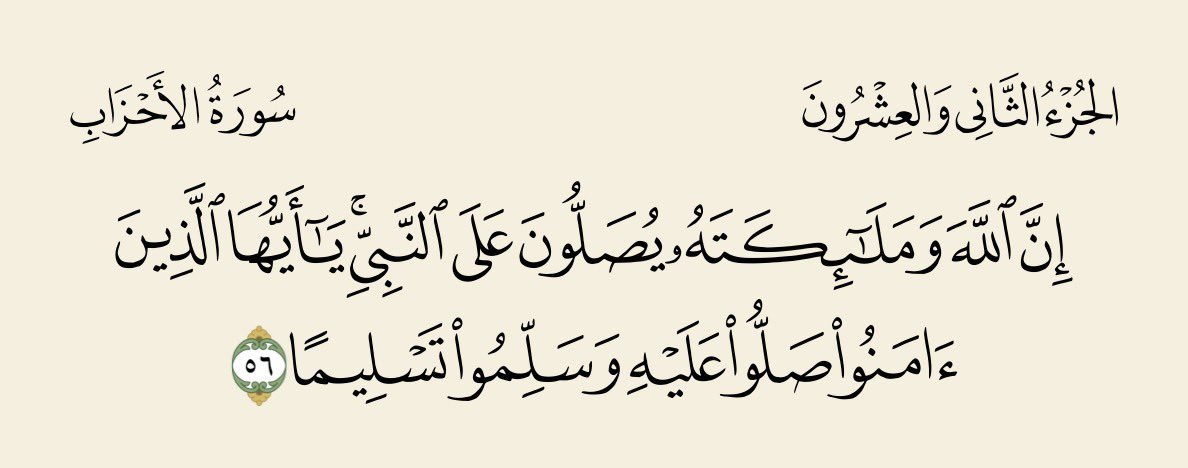 الجُزْءُ الثَّانِي وَالعِشْرُونَ
سُورَةُ الأَحْزَابِ
إِنَّ ٱللَّهَ وَمَلَـٰٓئِكَتَهُۥ يُصَلُّونَ عَلَى ٱلنَّبِيِّۚ يَـٰٓأَيُّهَا ٱلَّذِينَ
ءَامَنُوا۟ صَلُّوا۟ عَلَيْهِ وَسَلِّمُوا۟ تَسْلِيمًا ٥٦